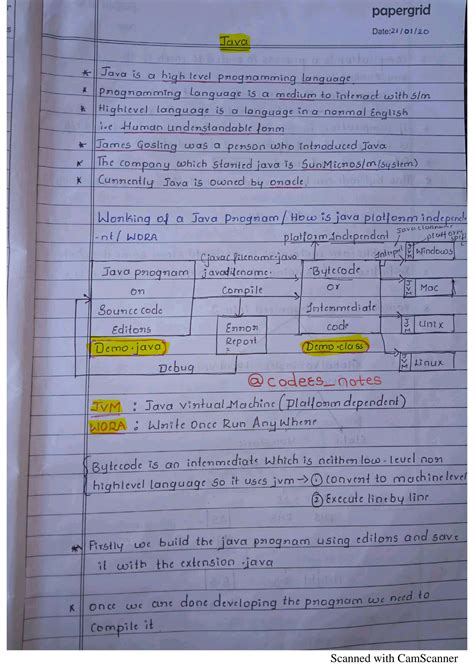 papergrid
Date: 21/01/20
Java
* Java is a high level programming language
* programming Language is a medium to interact with s/m
* Highlevel language is a language in a normal English
i.e Human understandable form
* James Gosling was a person who introduced Java
* The company which started java is SunMicros/m(system)
* Currently Java is owned by oracle.
Working of a Java Program/How is java platform independe
-nt/ WORA
platform Independent
Java program
or
Sourcecode
Editors
Demo.java
(javac filename.java
java filename.
Compile
Error
Report
Debug
Bytecode
or
Intermediate
code
Demo.class
JVM Windows
JVM Mac
JVM Unix
JVM Linux
@codees_notes
JVM : Java Virtual Machine (Platform dependent)
WORA : Write Once Run Any Where
Bytecode is an intermediate which is neither low-level nor
highlevel language so it uses jvm → ① Convert to machine level
② Execute line by line
* Firstly we build the java program using editors and save
it with the extension .java
* once we are done developing the program we need to
compile it
Scanned with CamScanner